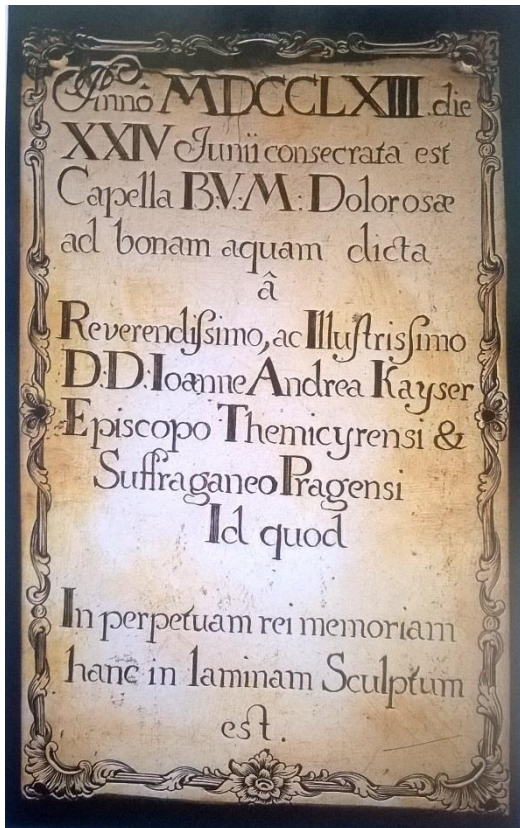 Annô MDCCLXIII die
XXIV Junii consecrata est
Capella B.V.M: Dolorosæ
ad bonam aquam dicta
â
Reverendiſsimo, ac Illuſtriſsimo
D.D. Ioanne Andrea Kayser
Episcopo Themicyrensi &
Suffraganeo Pragensi
Id quod
In perpetuam rei memoriam
hanc in laminam Sculptum
eſt.